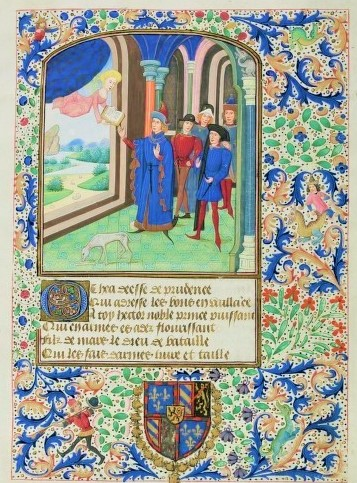 Othea deesse de prudence
Qui adresse les bons en vaillāce
A toy hector noble prince puissant
Qui en armes es adez flourissant
filz de mars le dieu de bataille
Qui les fais darmes livre et taille